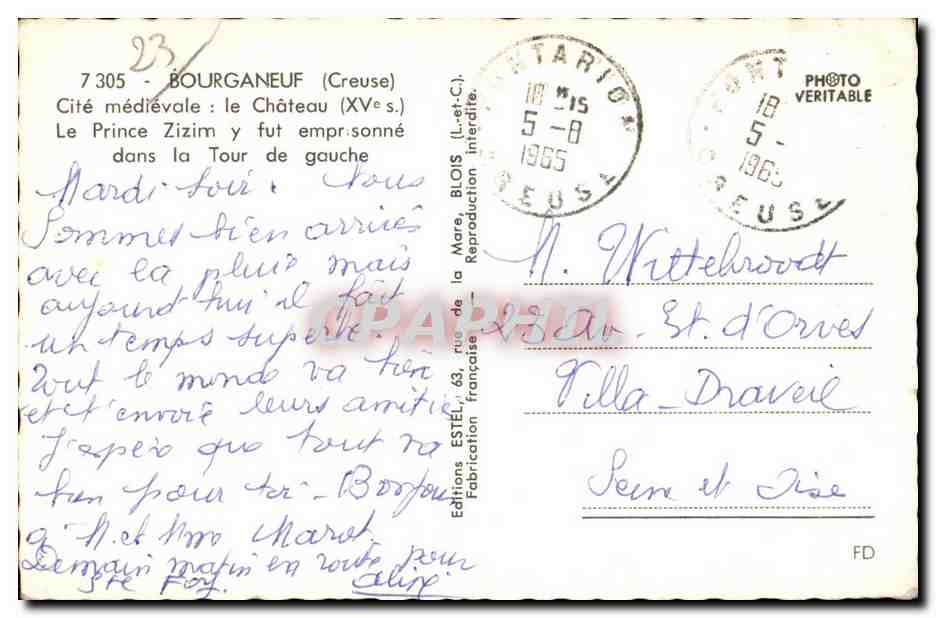 23
7 305 - BOURGANEUF (Creuse)
Cité médiévale : le Château (XVe s.)
Le Prince Zizim y fut emprisonné
dans la Tour de gauche
Mardi soir. Nous
Sommes bien arrivés
avec la pluie mais
aujourd'hui il fait
un temps superbe.
Tout le monde va bien
et t'envoie leurs amitiés
J'espère que tout va
bien pour toi - Bonjour
à M. et Mme Marot.
Demain matin en route pour
Ste Foy. Aline
Editions ESTEL, 63, rue de la Mare, BLOIS (L.-et-C.).
Fabrication française — Reproduction interdite.
CPAPHIL
PONTARION
18 H 15
5 -8
1965
CREUSE
PONT
18
5 -
196
CREUSE
PHOTO
VERITABLE
M. Wittebroodt
23 av. St. d'Orves
Villa - Draveil
Seine et Oise
FD